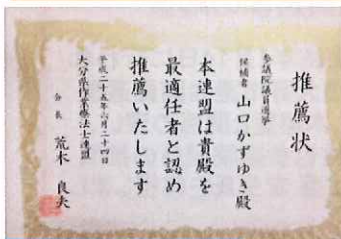 推薦状
参議院議員選挙
候補者 山口かずゆき殿
本連盟は貴殿を
最適任者と認め
推薦いたします
平成二十五年六月二十四日
大分県作業療法士連盟
会長 荒木良夫